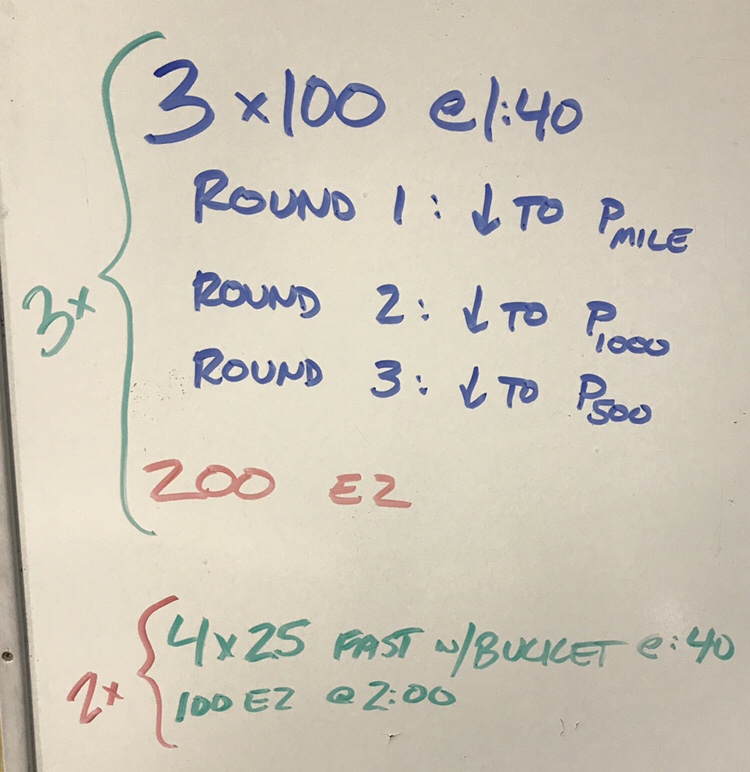 3x
3 x 100 @ 1:40
ROUND 1: ↓ TO P MILE
ROUND 2: ↓ TO P 1000
ROUND 3: ↓ TO P 500
200 EZ
2x
4 x 25 FAST w/BUCKET @ :40
100 EZ @ 2:00